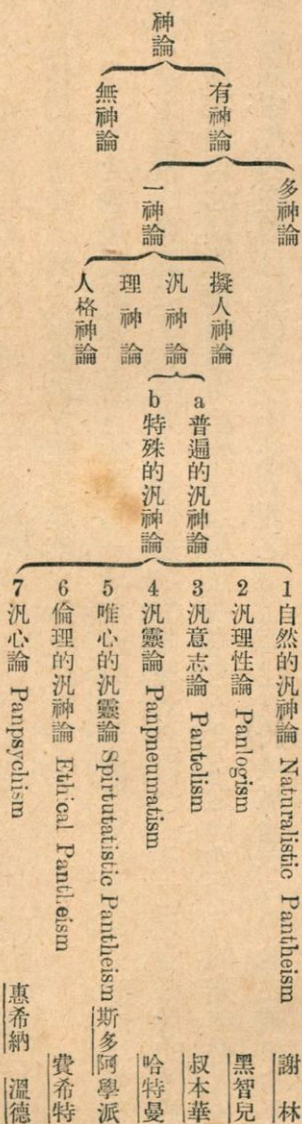 神論
有神論
無神論
多神論
一神論
擬人神論
汎神論
理神論
人格神論
a 普遍的汎神論
b 特殊的汎神論
1 自然的汎神論 Naturalistic Pantheism 謝林
2 汎理性論 Panlogism 黑智兒
3 汎意志論 Pantelism 叔本華
4 汎靈論 Panpneumatism 哈特曼
5 唯心的汎靈論 Spirtutatistic Pantheism 斯多阿學派
6 倫理的汎神論 Ethical Pantheism 費希特
7 汎心論 Panpsychism 惠希納 溫德